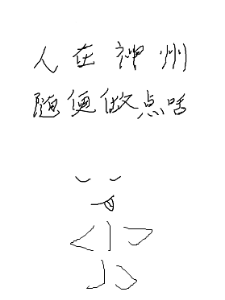 人在神州
随便做点啥